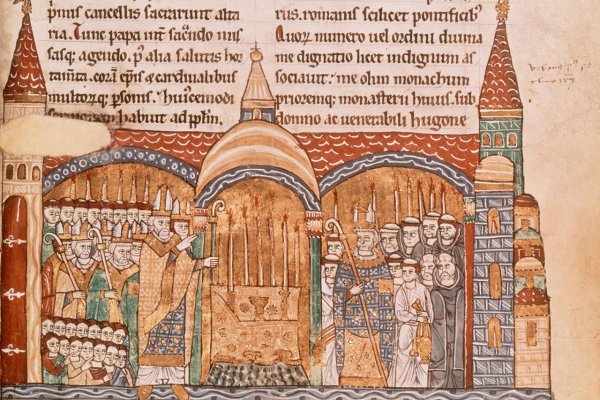 pmis cancellis sacrarunt alta
ria. Tunc papa int̄ sac̄ndo mis
sasq; agendo. p̄ alia salutis hor
tam̄ta. corā ep̄is & cardinalibus
multorq; p̱sonis. huiꝰcemodi
habuit ad pp̄lm.
rius. romanis scilicet pontificibꝰ
Quoꝝ numero uel ordini diuina
me dignatio licet indignum as
sociauit. me olim monachum
prioremq; monasterii huius. sub
domno ac uenerabili hugone